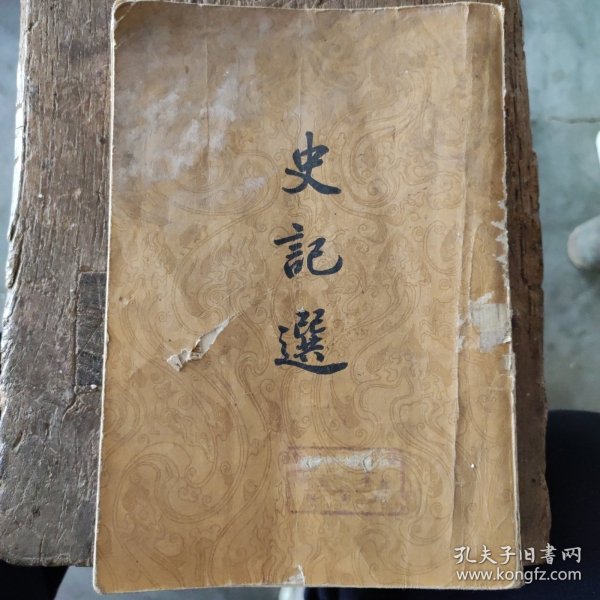 史記選
孔夫子旧书网
www.kongfz.com